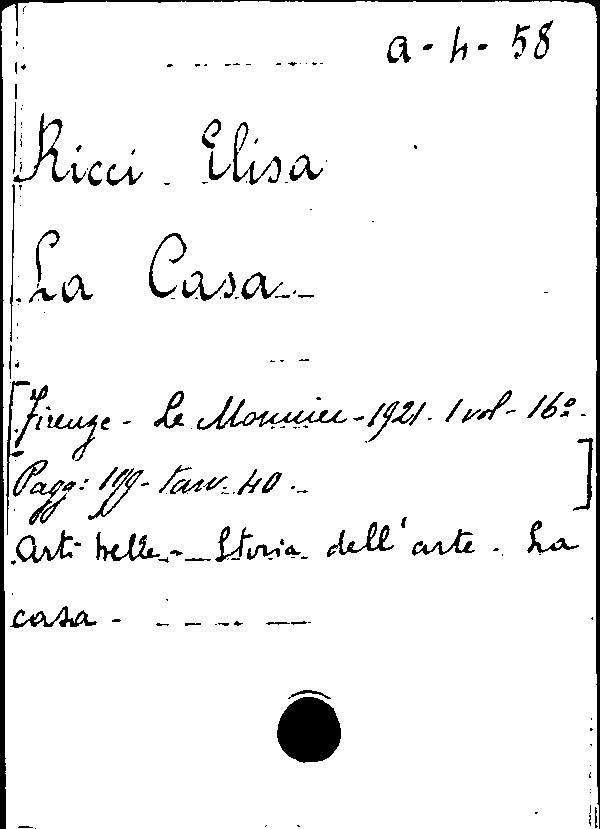 a - h - 58
Ricci Elisa
La Casa
[Firenze - Le Monnier - 1921. 1 vol - 16º.
Pagg: 199 - tavv. 40.]
Arti belle - Storia dell'arte. La
casa -